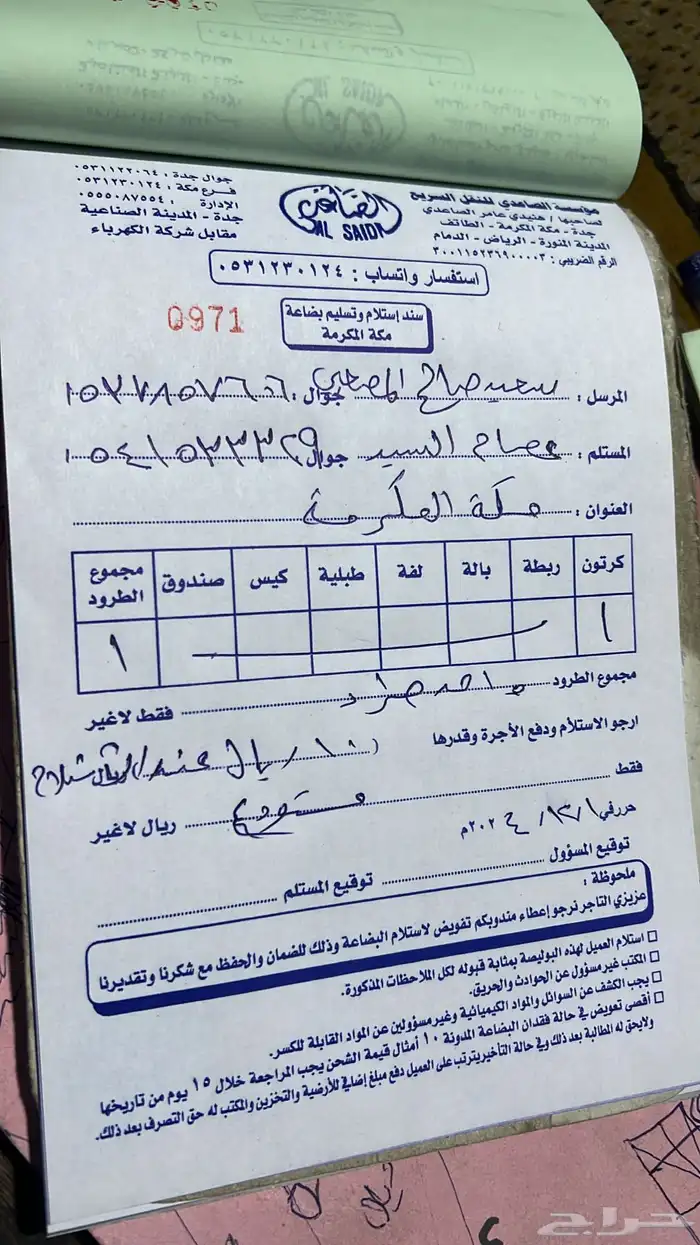 مؤسسة الصاعدي للنقل السريع
لصاحبها / هنيدي عامر الساعدي
جدة - مكة المكرمة - الطائف
المدينة المنورة - الرياض - الدمام
الرقم الضريبي : ٣٠٠١١٥٢٣٦٩٠٠٠٠٣
AL SAIDI
جوال جدة : ٠٥٣١١٢٢٠٦٤
فرع مكة : ٠٥٣١٢٣٠١٢٤
الإدارة : ٠٥٥٥٠٨٧٥٥٤
جدة - المدينة الصناعية
مقابل شركة الكهرباء
استفسار واتساب : ٠٥٣١٢٣٠١٢٤
سند إستلام وتسليم بضاعة
مكة المكرمة
0971
المرسل : سعيد صالح جوال :
المستلم : عصام السيد جوال : ٠٥٤١٥٣٣٣٢٩
العنوان : مكة المكرمة
كرتون ربطة بالة لفة طبلية كيس صندوق مجموع الطرود
١ ١
مجموع الطرود واحد فقط لاغير
ارجو الاستلام ودفع الأجرة وقدرها ريال
فقط ريال لاغير
حرر في ١ / ١٢ / ٢٠٢٤م
توقيع المسؤول توقيع المستلم
ملحوظة :
عزيزي التاجر نرجو إعطاء مندوبكم تفويض لاستلام البضاعة وذلك للضمان والحفظ مع شكرنا وتقديرنا
استلام العميل لهذه البوليصة بمثابة قبوله لكل الملاحظات المذكورة.
المكتب غير مسؤول عن الحوادث والحريق.
يجب الكشف عن السوائل والمواد الكيميائية وغير مسؤولين عن المواد القابلة للكسر.
أقصى تعويض في حالة فقدان البضاعة المدونة ١٠ أمثال قيمة الشحن يجب المراجعة خلال ١٥ يوم من تاريخها
ولايحق له المطالبة بعد ذلك وفي حالة التأخير يترتب على العميل دفع مبلغ إضافي للأرضية والتخزين والمكتب له حق التصرف بعد ذلك.
حراج